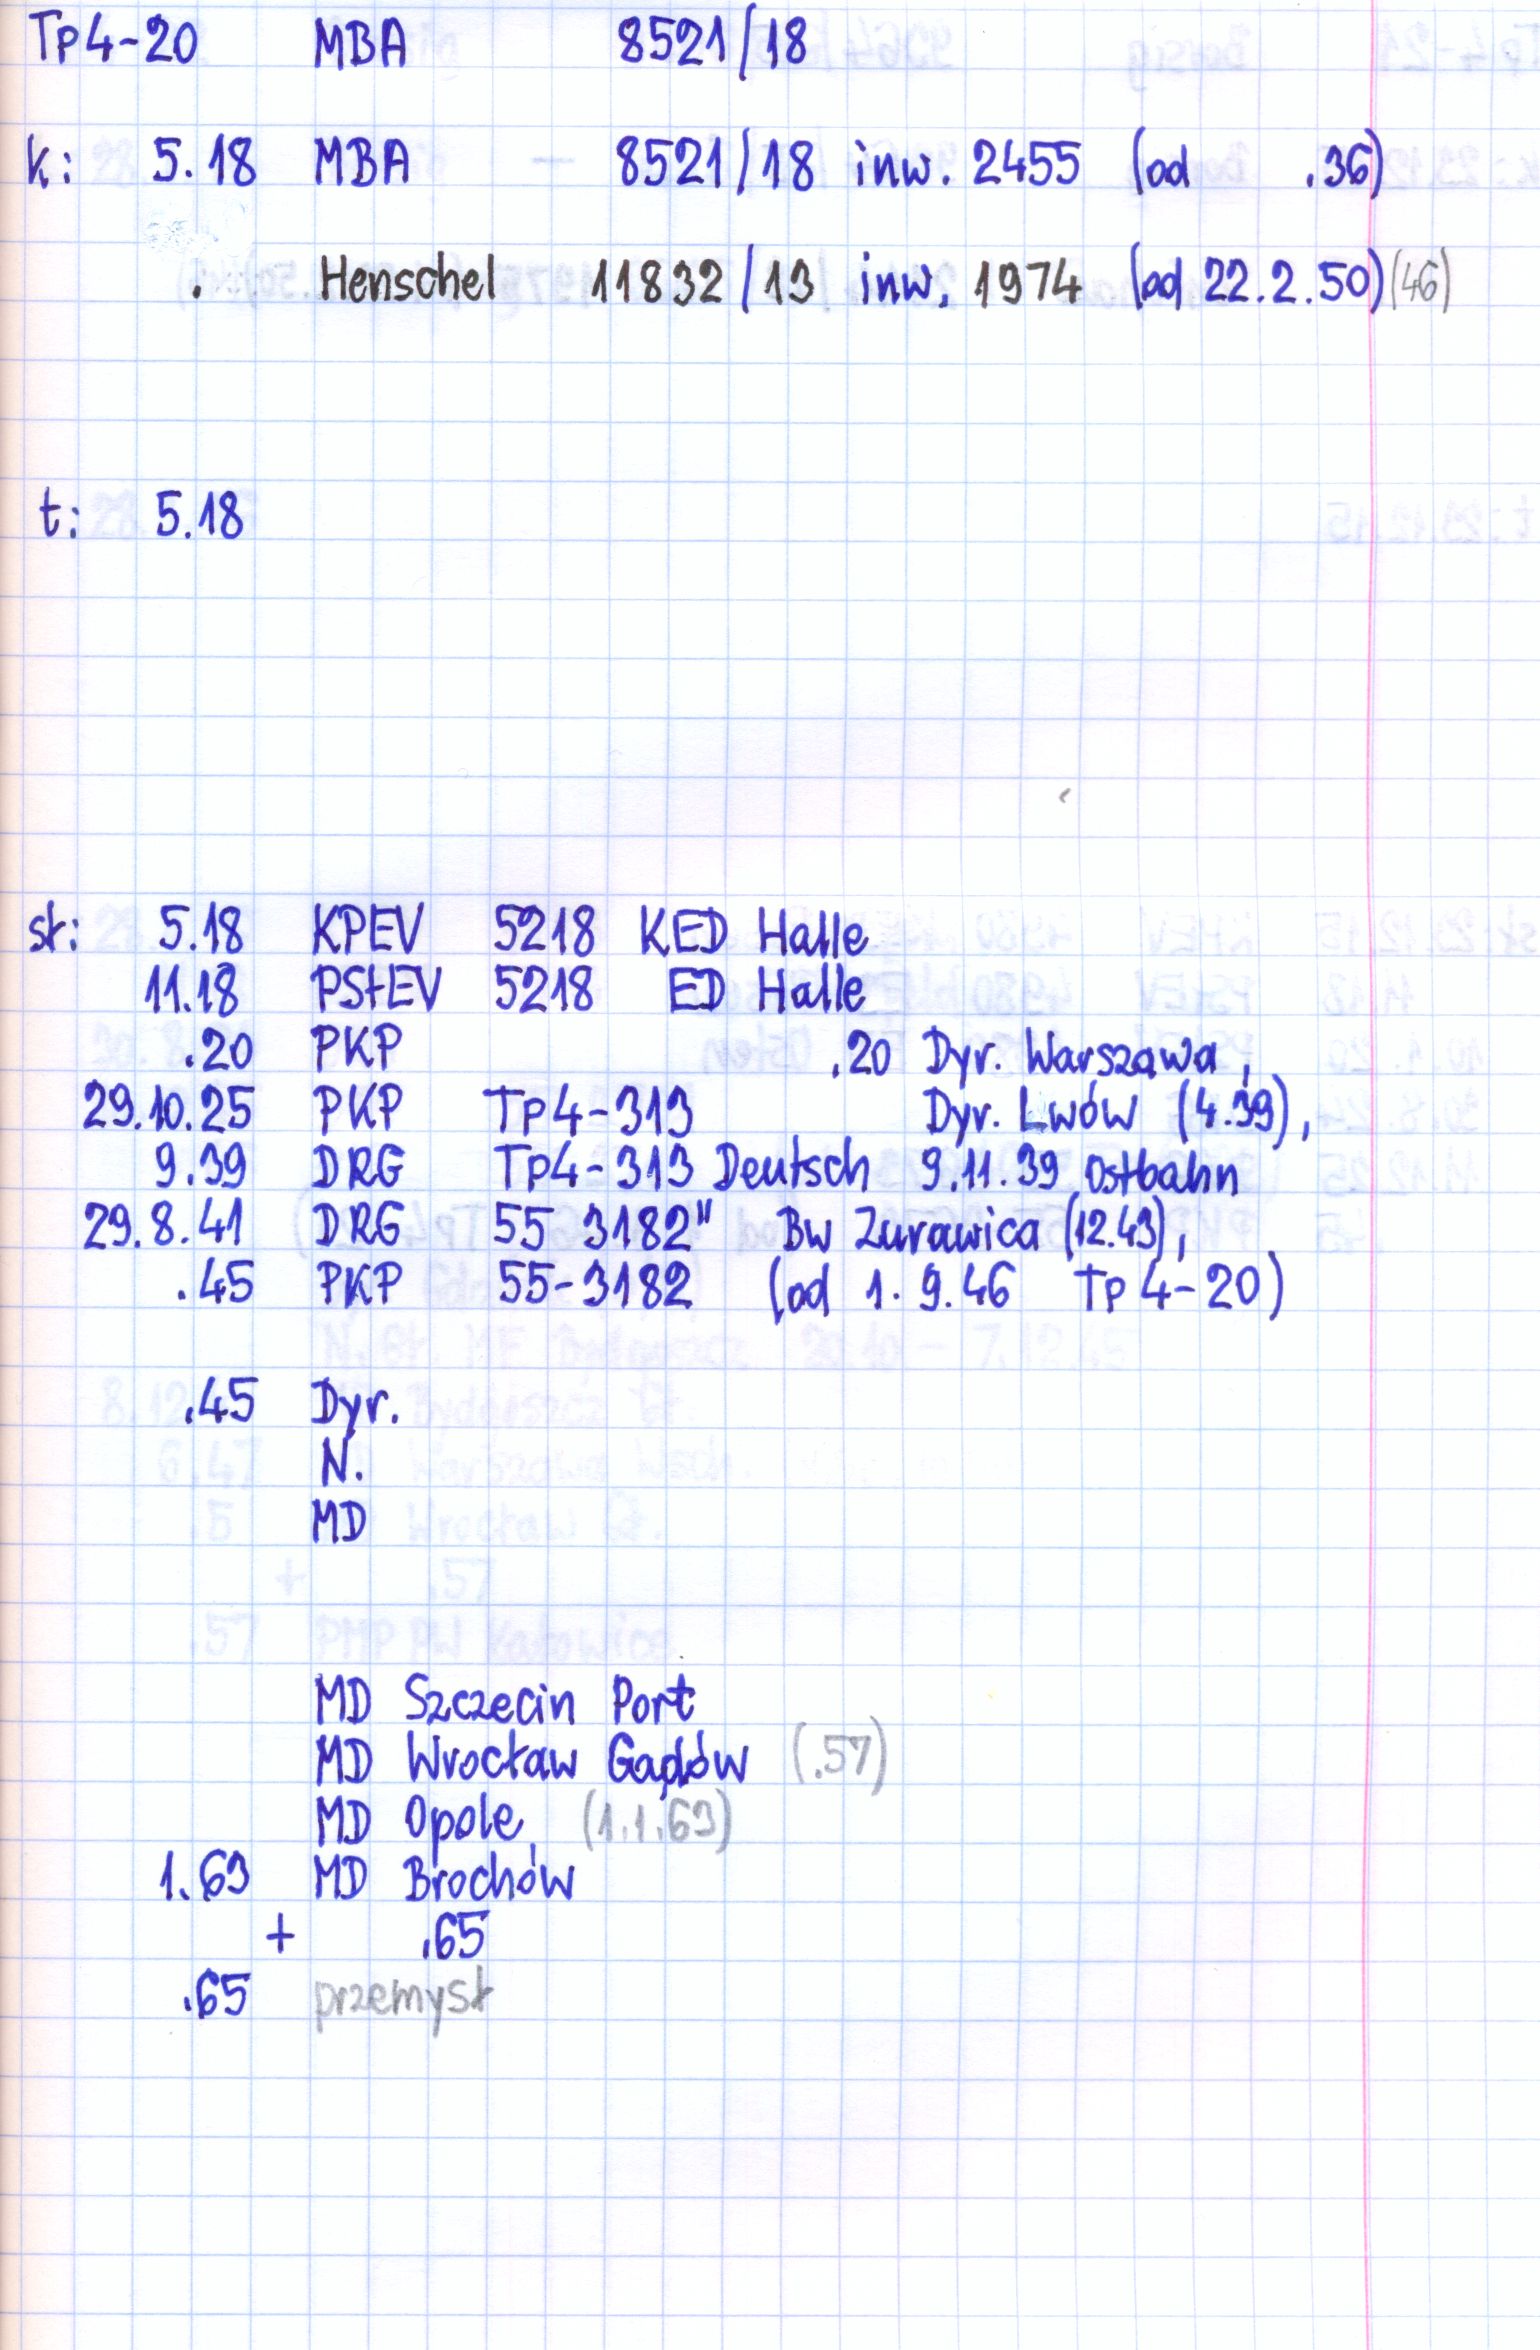 Tp4-20 MBA 8521/18
k: 5.18 MBA - 8521/18 inw. 2455 (od .36)
. Henschel 11832/13 inw. 1974 (od 22.2.50) (46)
t: 5.18
st: 5.18 KPEV 5218 KED Halle
11.18 PStEV 5218 ED Halle
.20 PKP .20 Dyr. Warszawa,
29.10.25 PKP Tp4-313 Dyr. Lwów (4.39),
9.39 DRG Tp4-313 Deutsch 9.11.39 Ostbahn
29.8.41 DRG 55 3182" Bw Zurawica (12.43),
.45 PKP 55-3182 (od 1.9.46 Tp4-20)
.45 Dyr.
N.
MD
MD Szczecin Port
MD Wrocław Gądów (.57)
MD Opole (1.1.63)
1.63 MD Brochów
+ .65
.65 przemysł